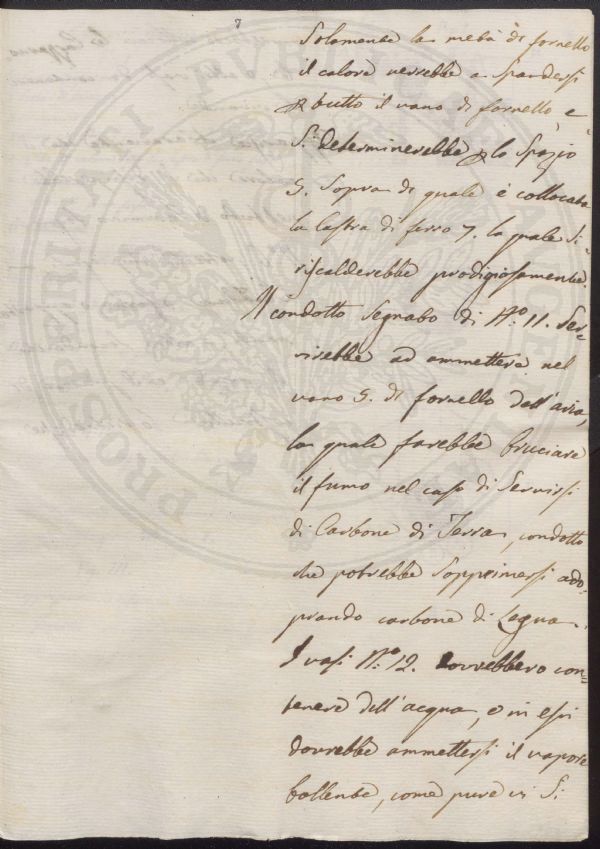 7
Solamente la metà di fornello
il calore verrebbe a Spandersi
p tutto il vano di fornello e
Si determinerebbe p lo Spazio
5. Sopra di quale è collocata
la lastra di ferro 7. la quale Si
riscalderebbe prodigiosamente.
Il condotto Segnato di N.º 11. Ser=
virebbe ad ammettere nel
vano 5. di fornello dell'aria,
la quale farebbe bruciare
il fumo nel caso di Servirsi
di Carbone di Terra, condotto
che potrebbe Sopprimersi ado=
prando carbone di Legna.
I vasi N.º 12. dovrebbero con=
tenere dell'acqua, e in essi
dovrebbe ammettersi il vapore
bollente, come pure vi Si